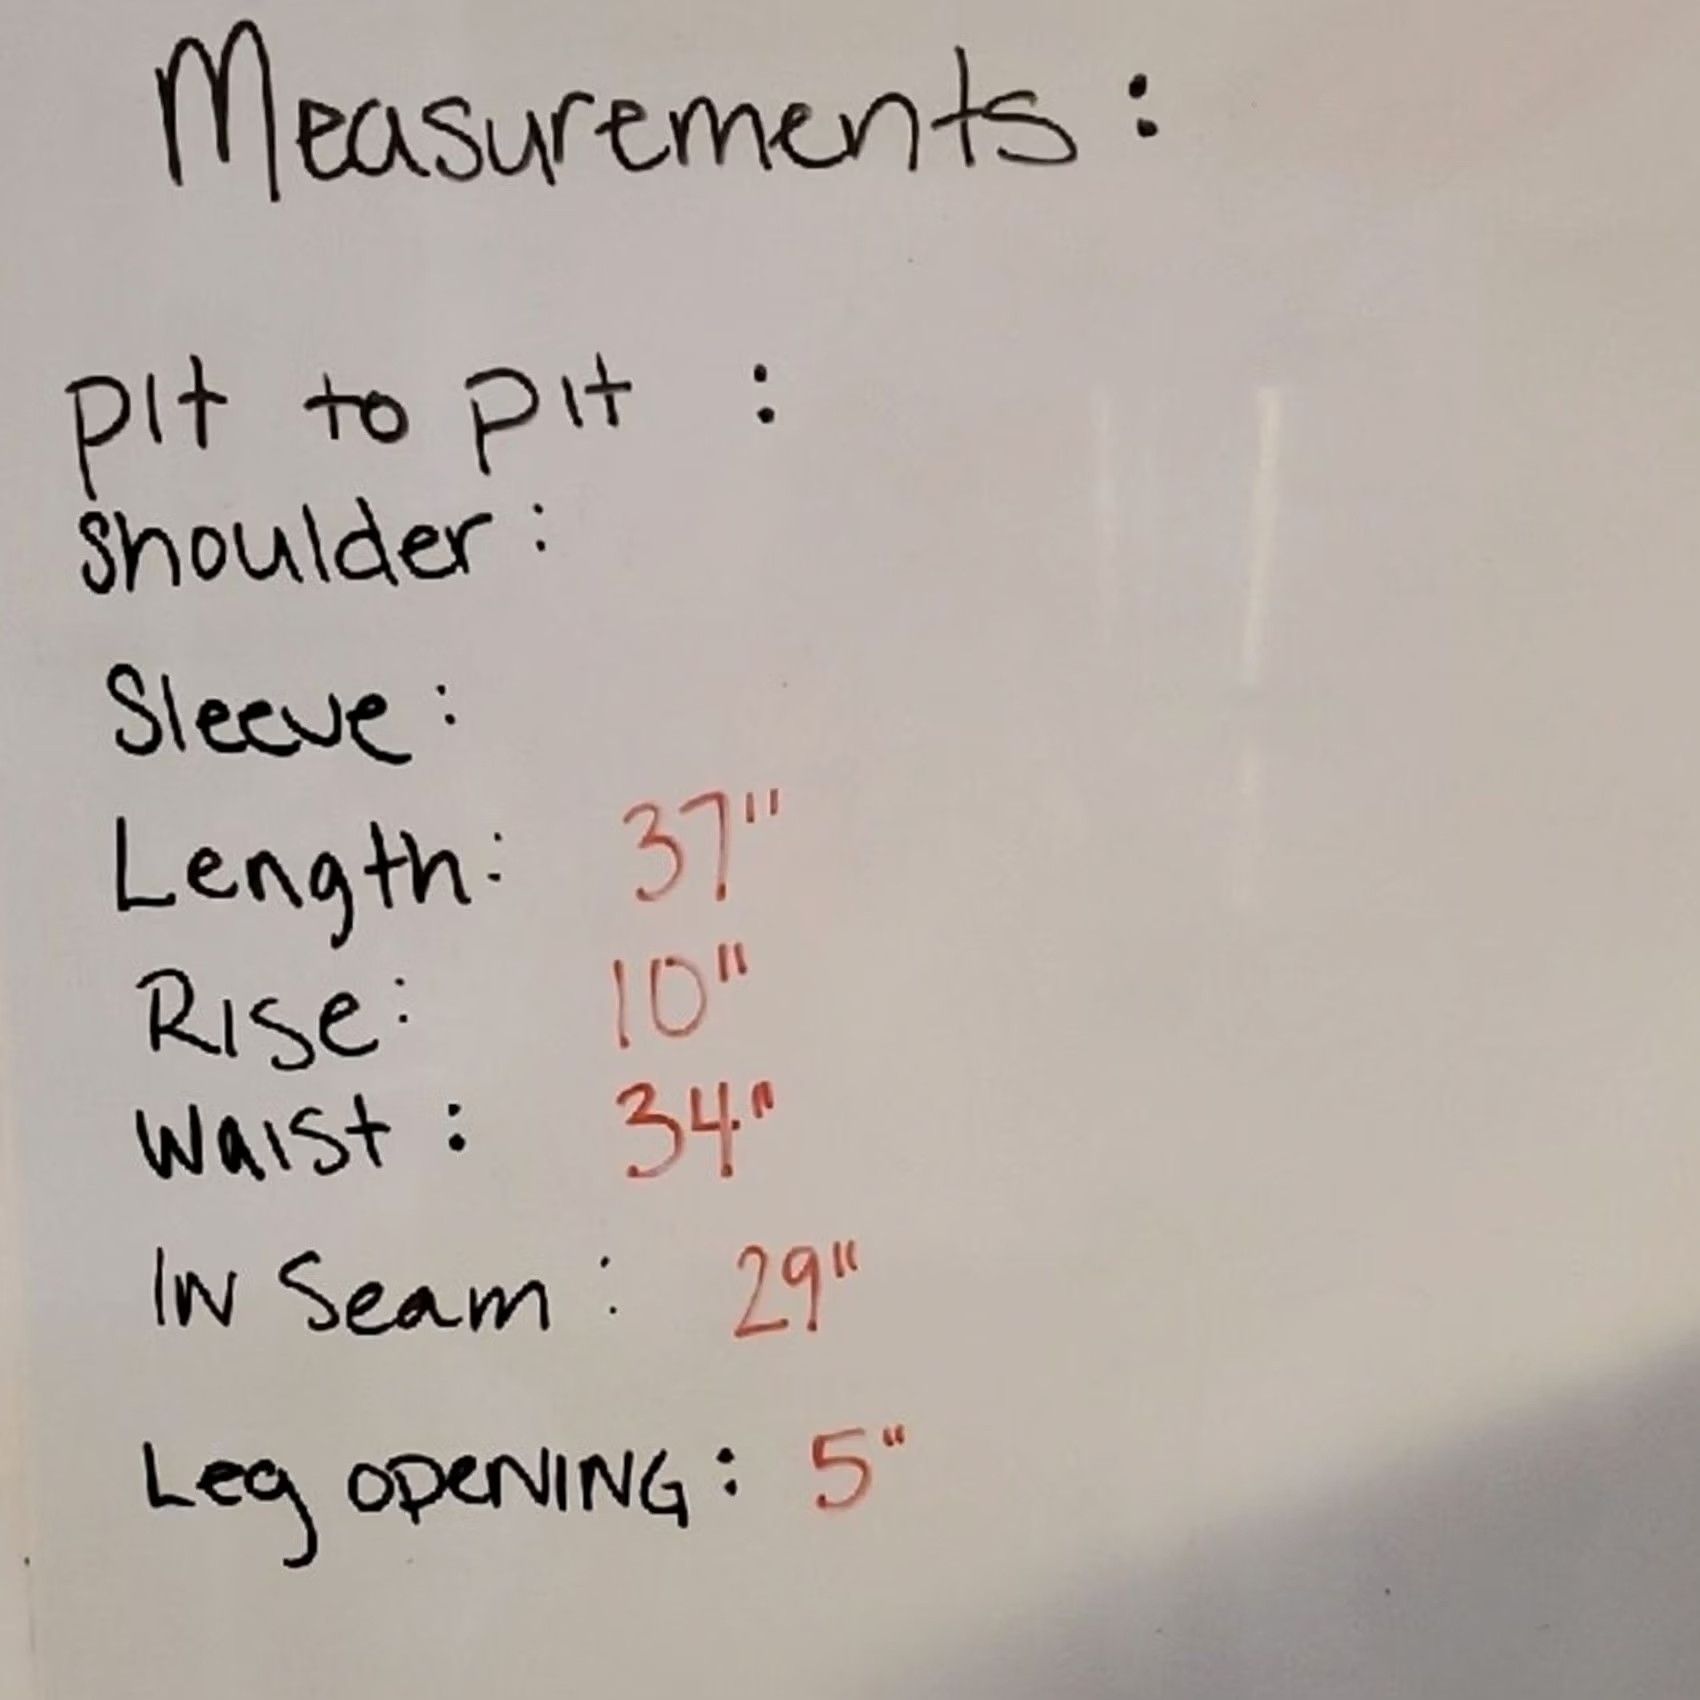 Measurements :
pit to pit :
shoulder :
Sleeve :
Length : 37"
Rise : 10"
Waist : 34"
IN Seam : 29"
Leg OPENING : 5"